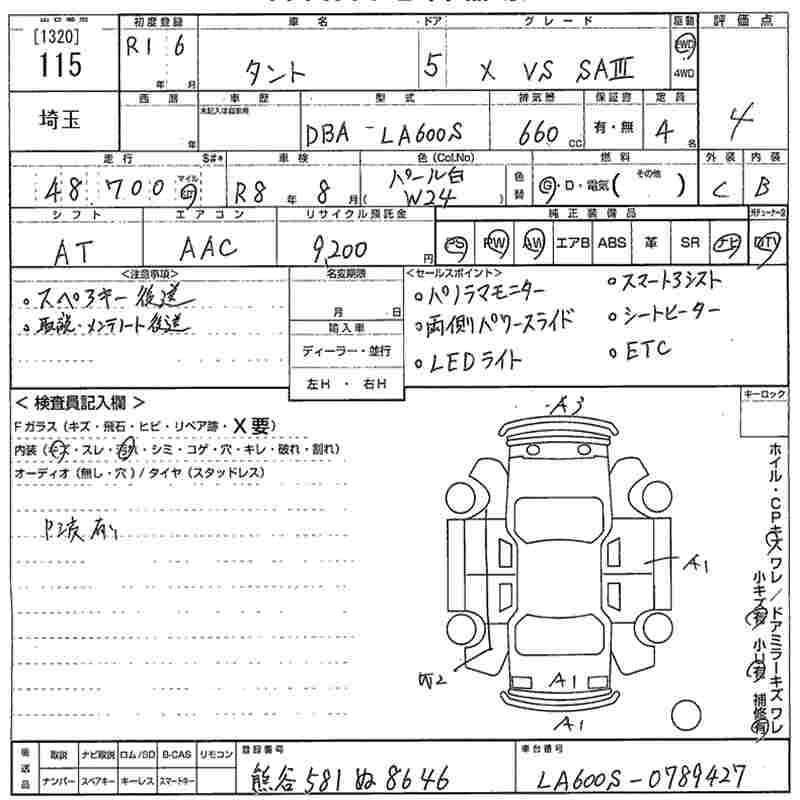 [1320]
115
埼玉
初度登録
R1 6
年 月
車名
タント
ドア
5
グレード
X VS SAⅢ
駆動
2WD
4WD
評価点
4
西暦
年
車歴
未記入は自家用
型式
DBA - LA600S
排気量
660 cc
保証書
有・無
定員
4 名
走行
48700
マイル
km
S#*
車検
R8 年 8 月
色 (Col.No)
パール白
( W24 )
色替
燃料
G・D・電気 ( その他 )
外装
C
内装
B
シフト
AT
エアコン
AAC
リサイクル預託金
9,200 円
純正装備品
PS PW AW エアB ABS 革 SR ナビ
DTV
<注意事項>
。スペアキー後送
。取説・メンテノート後送
名変期限
月 日
輸入車
ディーラー・並行
左H ・ 右H
<セールスポイント>
。パノラマモニター
。両側パワースライド
。LEDライト
。スマアシスト
。シートヒーター
。ETC
キーロック
< 検査員記入欄 >
Fガラス (キズ・飛石・ヒビ・リペア跡・X要)
内装 (キズ・スレ・汚れ・シミ・コゲ・穴・キレ・破れ・割れ)
オーディオ (無し・穴) / タイヤ (スタッドレス)
A3
A1
W2
A1
A1
ホイル・CPキズ ワレ / ドアミラーキズ ワレ
小キズ有 小U有 補修有
後送品
取説 ナビ取説 ロム/SD B-CAS リモコン
ナンバー スペアキー キーレス スマートキー
登録番号
熊谷 581 ぬ 8646
車台番号
LA600S-0789427